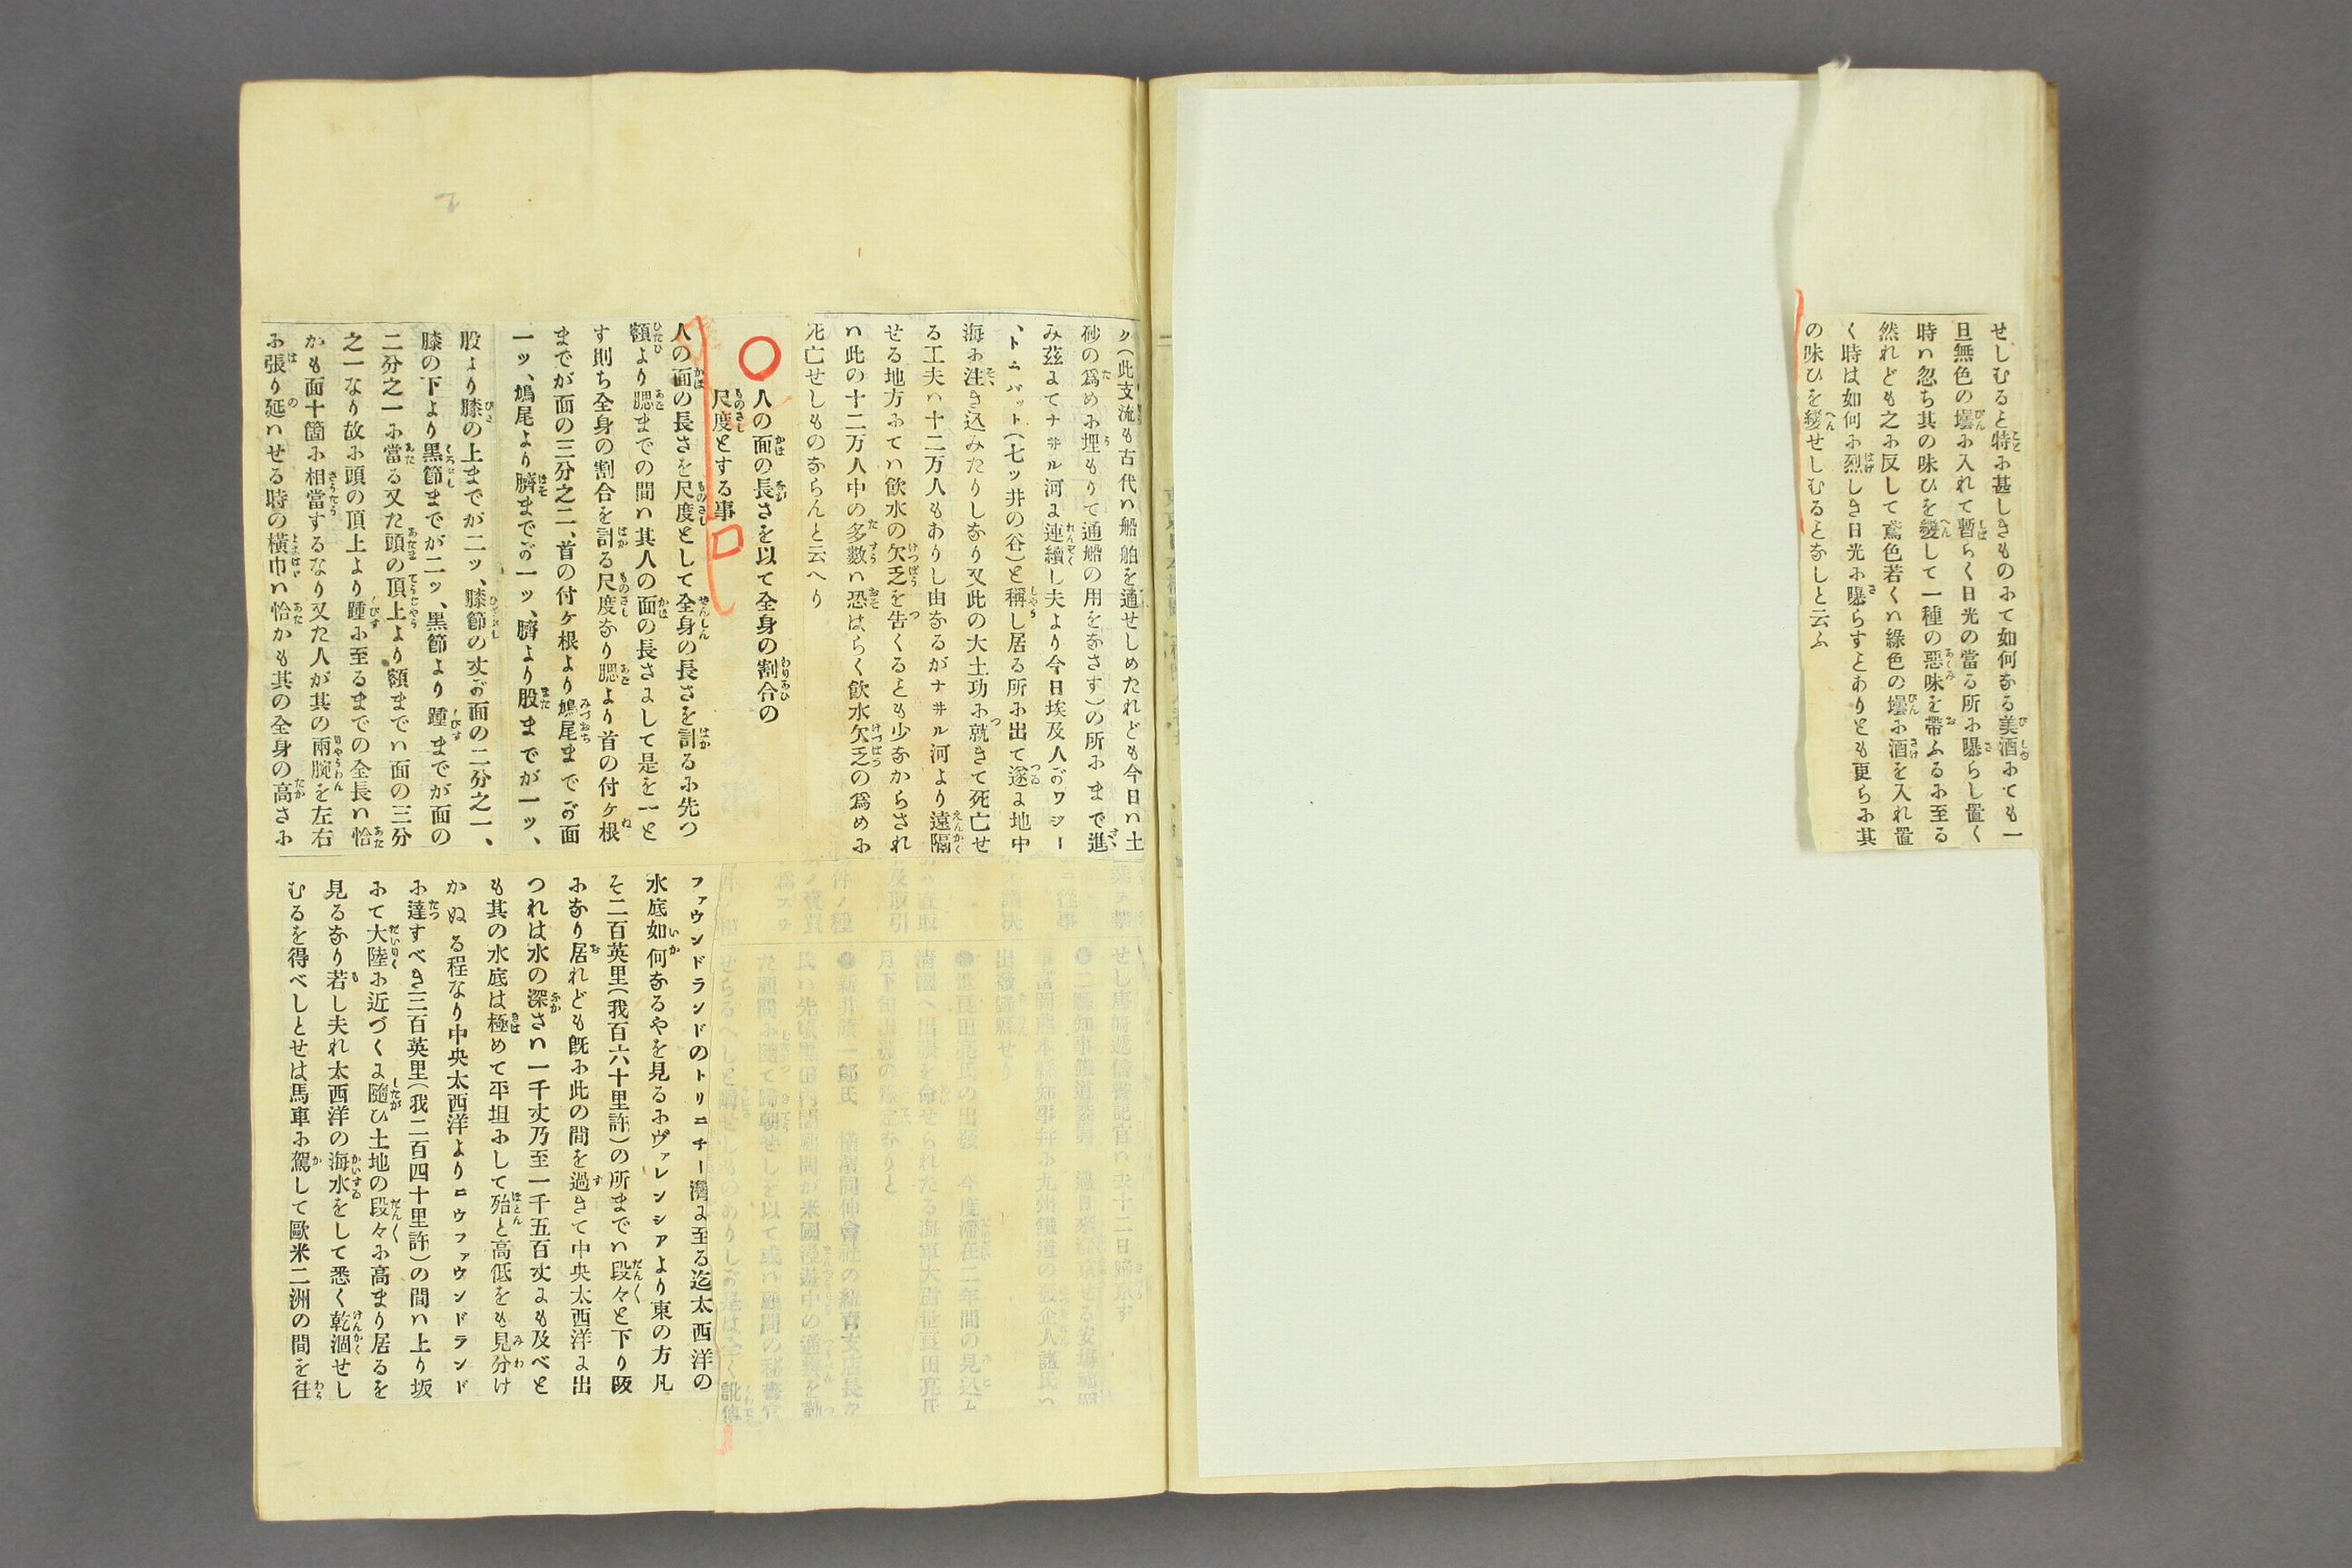 せしむると特に甚しきものにて如何なる美酒にても一
旦無色の壜に入れて暫らく日光の當る所に曝らし置く
時ハ忽ち其の味ひを變して一種の惡味を帶ふるに至る
然れども之に反して鳶色若くハ綠色の壜に酒を入れ置
く時は如何に烈しき日光に曝らすとありとも更らに其
の味ひを變せしむるとなしと云ふ
ク(此支流も古代ハ船舶を通せしめたれども今日ハ土
砂の爲めに埋もりて通船の用をなさす)の所にまで進
み茲にてナヰル河に連續し夫より今日埃及人がワジー
、トムバット(七ッ井の谷)と稱し居る所に出て遂に地中
海に注き込みたりしなり又此の大土功に就きて死亡せ
る工夫ハ十二万人もありし由なるがナヰル河より遠隔
せる地方にてハ飮水の欠乏を告くるとも少なからされ
ハ此の十二万人中の多數ハ恐はらく飮水欠乏の爲めに
死亡せしものならんと云へり
○人の面の長さを以て全身の割合の
尺度とする事
人の面の長さを尺度として全身の長さを計るに先つ
額より腮までの間ハ其人の面の長さにして是を一と
す則ち全身の割合を計る尺度なり腮より首の付ヶ根
までが面の三分之二、首の付ヶ根より鳩尾までが面
一ッ、鳩尾より臍までが一ッ、臍より股までが一ッ、
股より膝の上までが二ッ、膝節の丈が面の二分之一、
膝の下より黒節までが二ッ、黒節より踵までが面の
二分之一に當る又た頭の頂上より額までハ面の三分
之一なり故に頭の頂上より踵に至るまでの全長ハ恰
かも面十箇に相當するなり又た人が其の兩腕を左右
に張り延ハせる時の橫巾ハ恰かも其の全身の高さに
ファウンドランドのトリニチー灣に至る迄太西洋の
水底如何なるやを見るにヴァレンシアより東の方凡
そ二百英里(我百六十里許)の所までハ段々と下り阪
になり居れども旣に此の間を過きて中央太西洋に出
つれは水の深さハ一千丈乃至一千五百丈にも及べと
も其の水底は極めて平坦にして殆と高低をも見分け
かぬる程なり中央太西洋よりニウファウンドランド
に達すべき三百英里(我二百四十里許)の間ハ上り坂
にて大陸に近づくに隨ひ土地の段々に高まり居るを
見るなり若し夫れ太西洋の海水をして悉く乾涸せし
むるを得べしとせは馬車に駕して歐米二洲の間を往